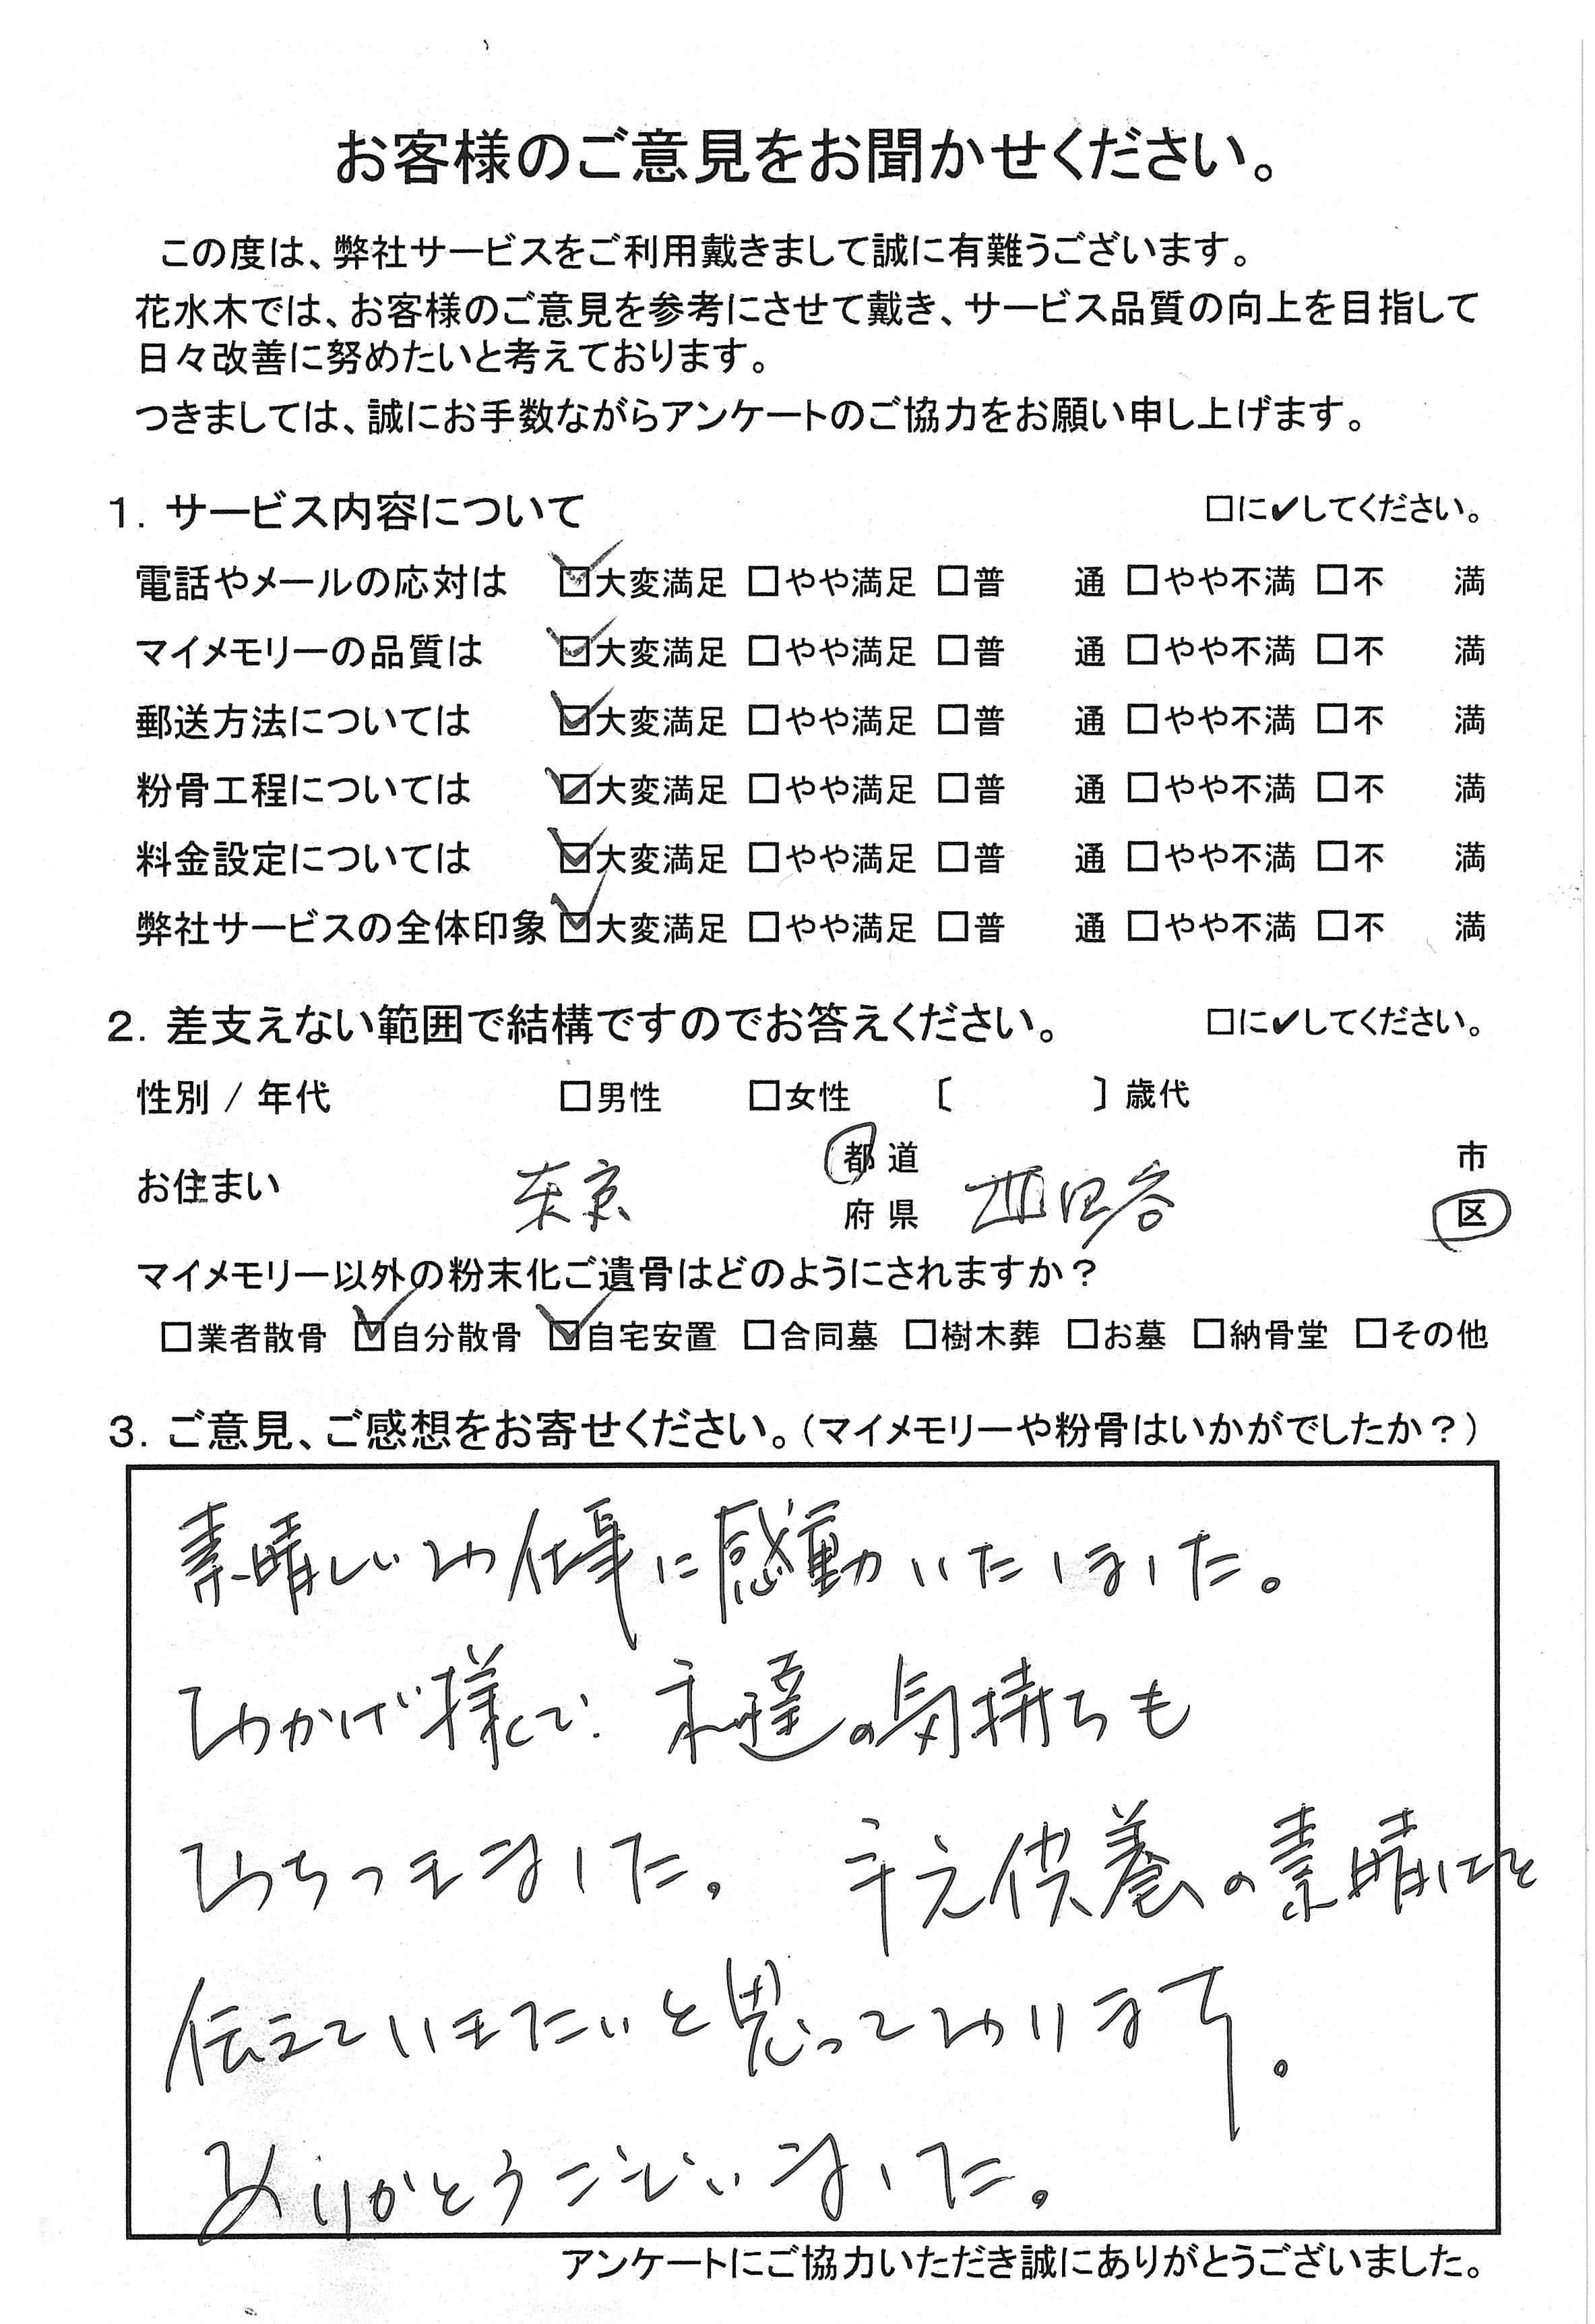 お客様のご意見をお聞かせください。
この度は、弊社サービスをご利用戴きまして誠に有難うございます。
花水木では、お客様のご意見を参考にさせて戴き、サービス品質の向上を目指して
日々改善に努めたいと考えております。
つきましては、誠にお手数ながらアンケートのご協力をお願い申し上げます。
1. サービス内容について □に✔してください。
電話やメールの応対は ☑大変満足 □やや満足 □普 通 □やや不満 □不 満
マイメモリーの品質は ☑大変満足 □やや満足 □普 通 □やや不満 □不 満
郵送方法については ☑大変満足 □やや満足 □普 通 □やや不満 □不 満
粉骨工程については ☑大変満足 □やや満足 □普 通 □やや不満 □不 満
料金設定については ☑大変満足 □やや満足 □普 通 □やや不満 □不 満
弊社サービスの全体印象 ☑大変満足 □やや満足 □普 通 □やや不満 □不 満
2. 差支えない範囲で結構ですのでお答えください。 □に✔してください。
性別 / 年代 □男性 □女性 〔 〕歳代
お住まい 東京 都道府県 世田谷 市区
マイメモリー以外の粉末化ご遺骨はどのようにされますか？
□業者散骨 ☑自分散骨 ☑自宅安置 □合同墓 □樹木葬 □お墓 □納骨堂 □その他
3. ご意見、ご感想をお寄せください。（マイメモリーや粉骨はいかがでしたか？）
素晴しいお仕事に感動いたしました。
おかげ様で 私達の気持ちも
おちつきました。 手元供養の素晴しさを
伝えていきたいと思っております。
ありがとうございました。
アンケートにご協力いただき誠にありがとうございました。